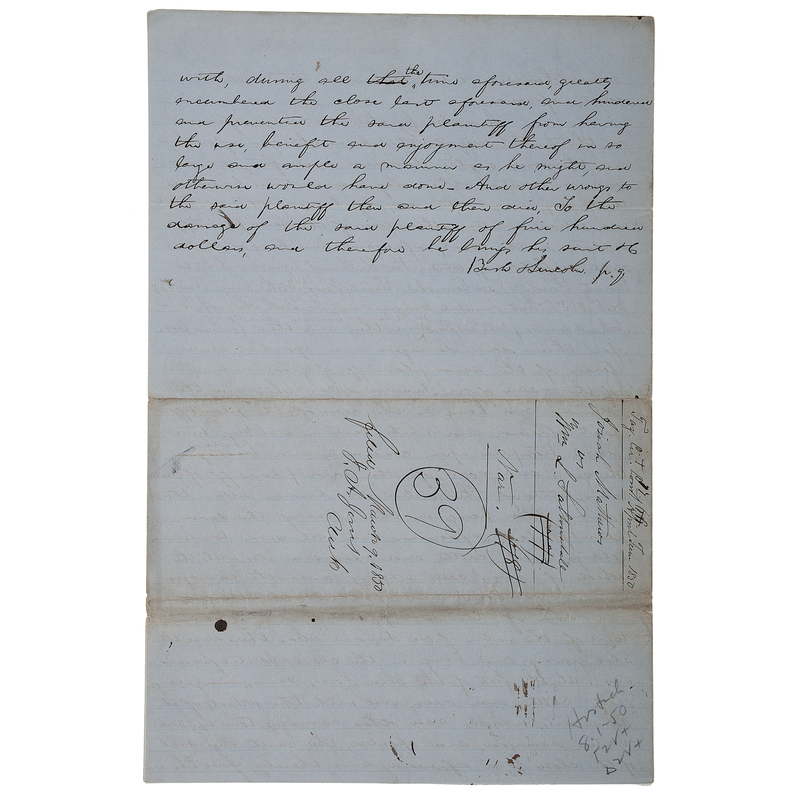 with, during all that the time aforesaid, greatly
incumbered the close last aforesaid, and hindered
and prevented the said plaintiff from having
the use, benefit and enjoyment thereof in so
large and ample a manner as he might, and
otherwise would have done - And other wrongs to
the said plaintiff then and there did, To the
damage of the said plaintiff of five hundred
dollars, and therefore he brings his suit &c
& Lincoln p. q
Taz. Cir. Court April 1850
Josiah Matthews
vs
Wm S.
Nar.
39
filed March 9, 1850
J. A. Jones
Clerk